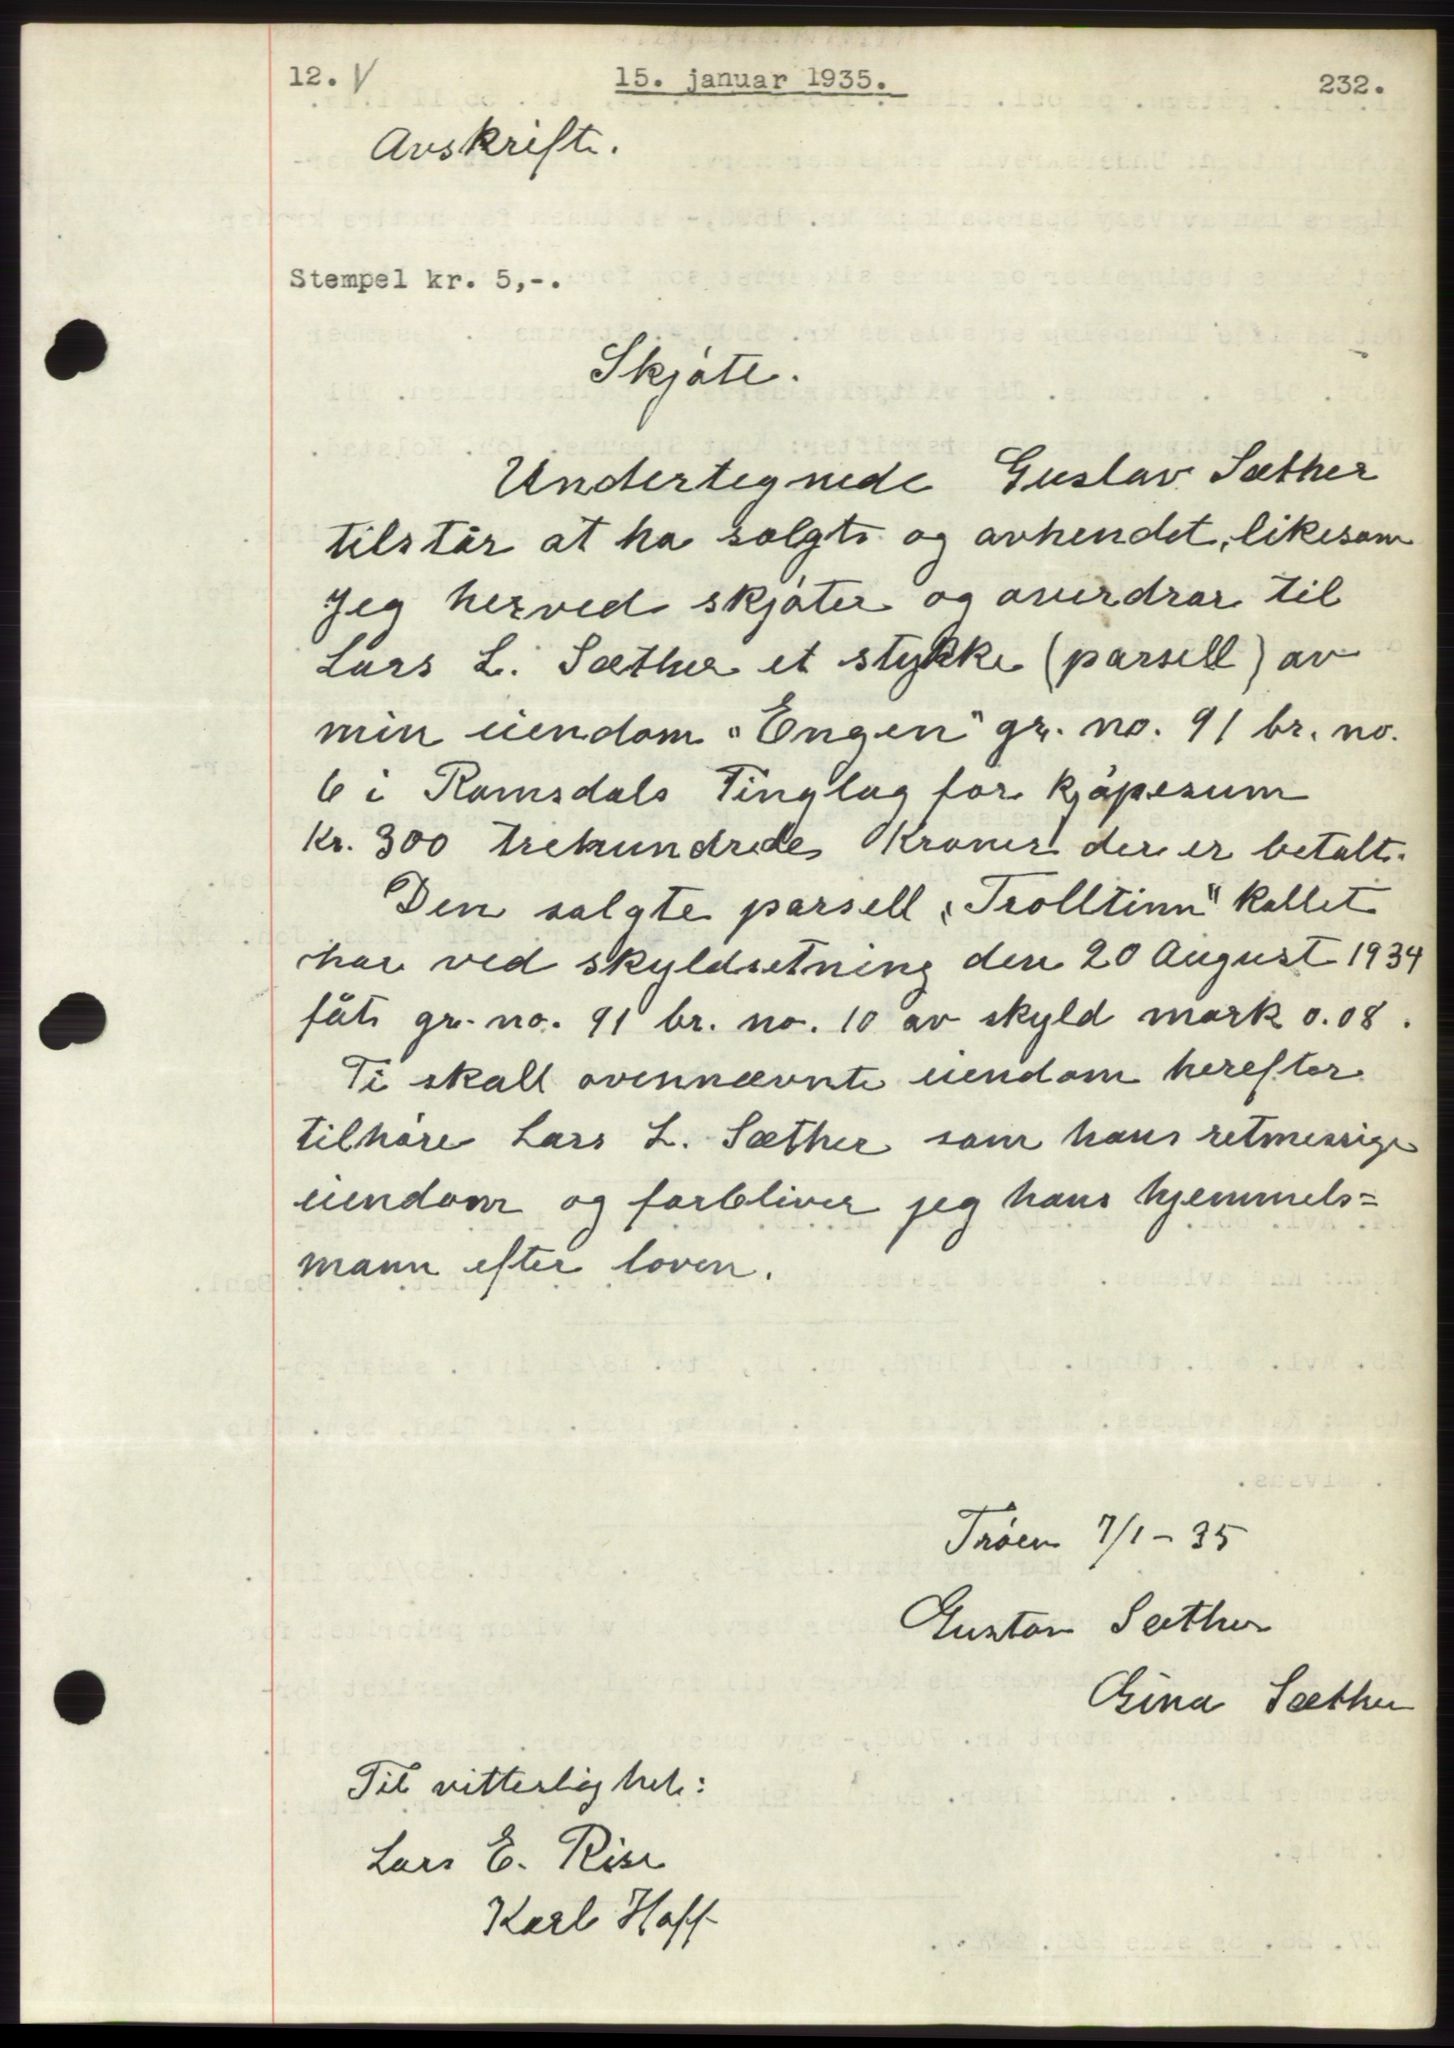 12. V 15. januar 1935. 232.
Avskrift.
Stempel kr. 5,-.
Skjøte.
Undertegnede Gustav Sæther
tilstår at ha solgt og avhendet, likesom
jeg herved skjøter og overdrar til
Lars L. Sæther et stykke (parsell) av
min eiendom "Engen" gr. no. 91 br. no.
6 i Romsdals Tinglag for kjøpesum
kr. 300 trehundrede kroner der er betalt.
Den solgte parsell "Trolltinn" kallet
har ved skyldsetning den 20 August 1934
fåt gr. no. 91 br. no. 10 av skyld mark 0.08.
Ti skall ovennævnte eiendom herefter
tilhøre Lars L. Sæther som hans retmessige
eiendom og forbliver jeg hans hjemmels=
mann efter loven.
Trøen 7/1-35
Gustav Sæther
Gina Sæther
Til vitterlighet:
Lars E. Rise
Karl Hoff